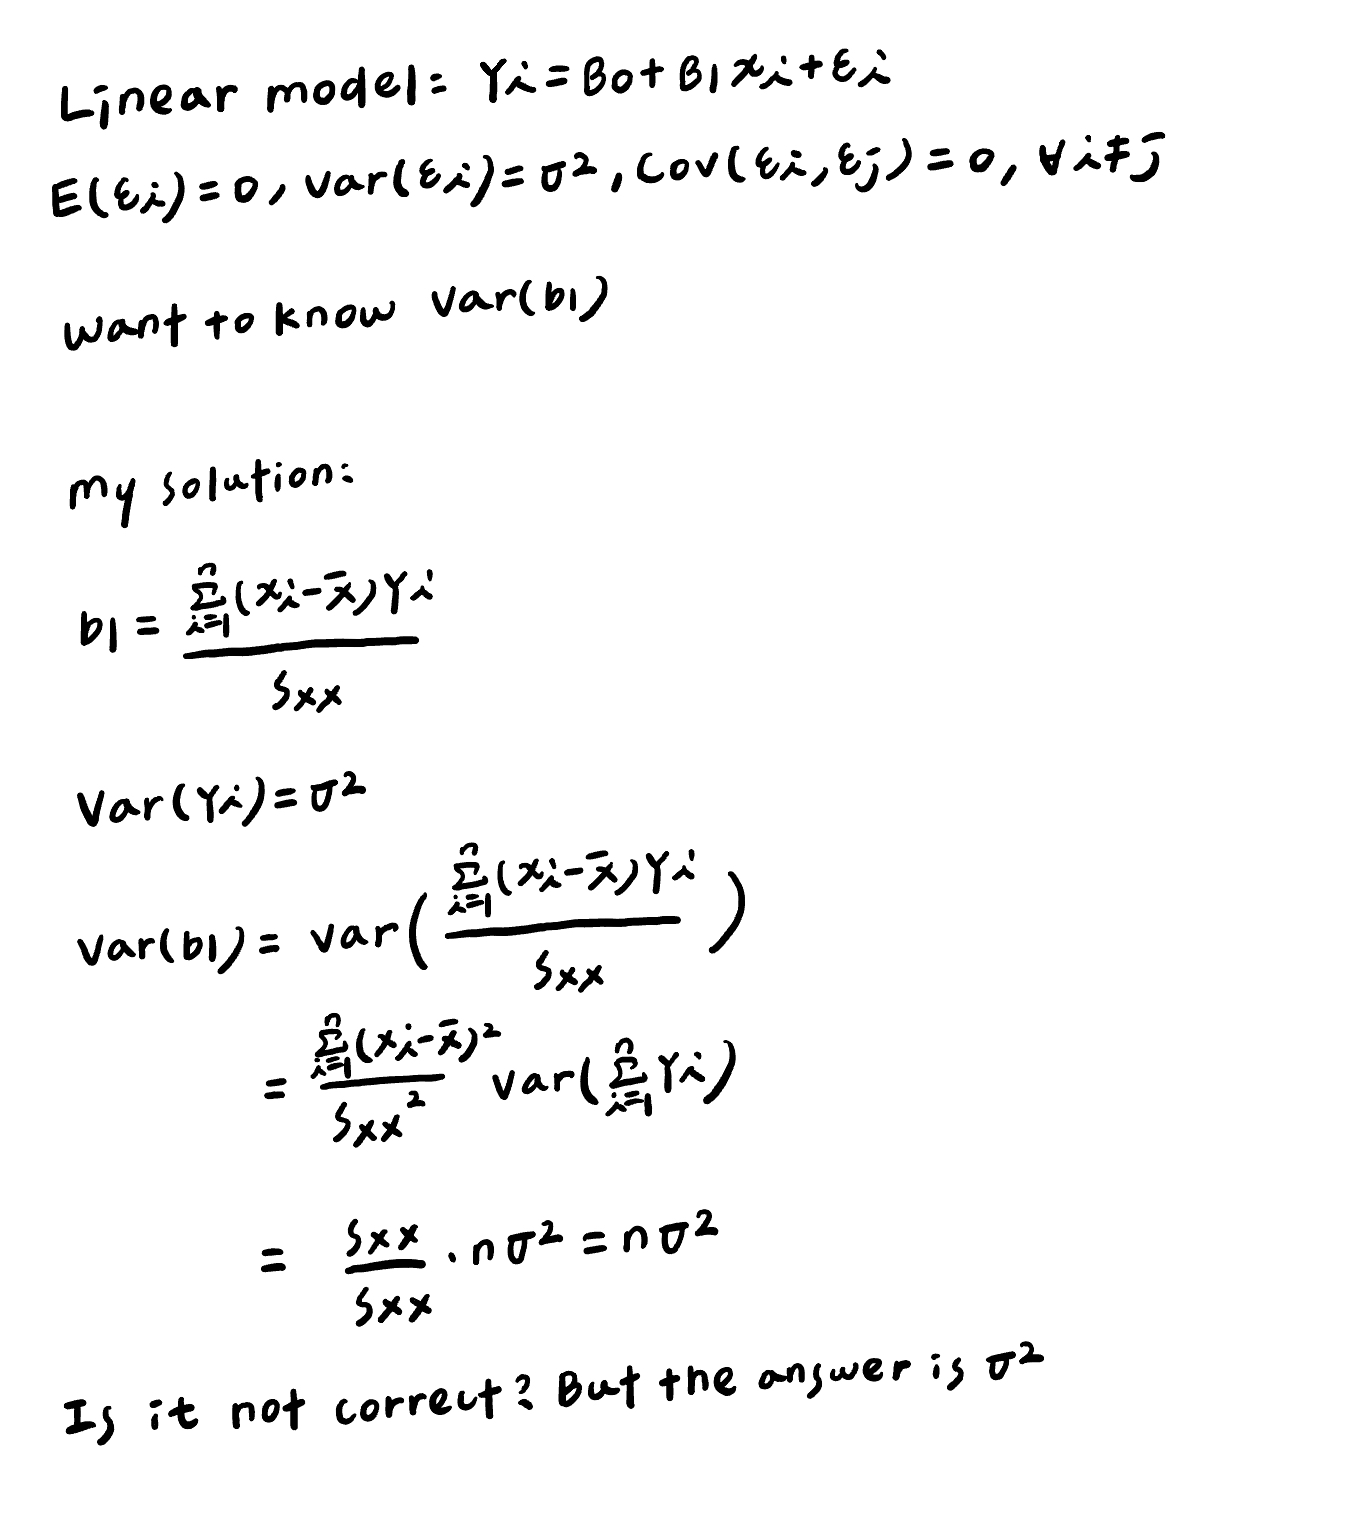 Linear model: Yi = β0 + β1xi + εi
E(εi) = 0, Var(εi) = σ², Cov(εi, εj) = 0, ∀ i ≠ j
Want to know Var(b1)
My solution:
b1 = \frac{\sum_{i=1}^{n}(xi - x̄)Yi}{Sxx}
Var(Yi) = σ²
Var(b1) = Var(\frac{\sum_{i=1}^{n}(xi - x̄)Yi}{Sxx})
= \frac{\sum_{i=1}^{n}(xi - x̄)²}{Sxx²} Var(\sum_{i=1}^{n} Yi)
= \frac{Sxx}{Sxx} · nσ² = nσ²
Is it not correct? But the answer is σ²